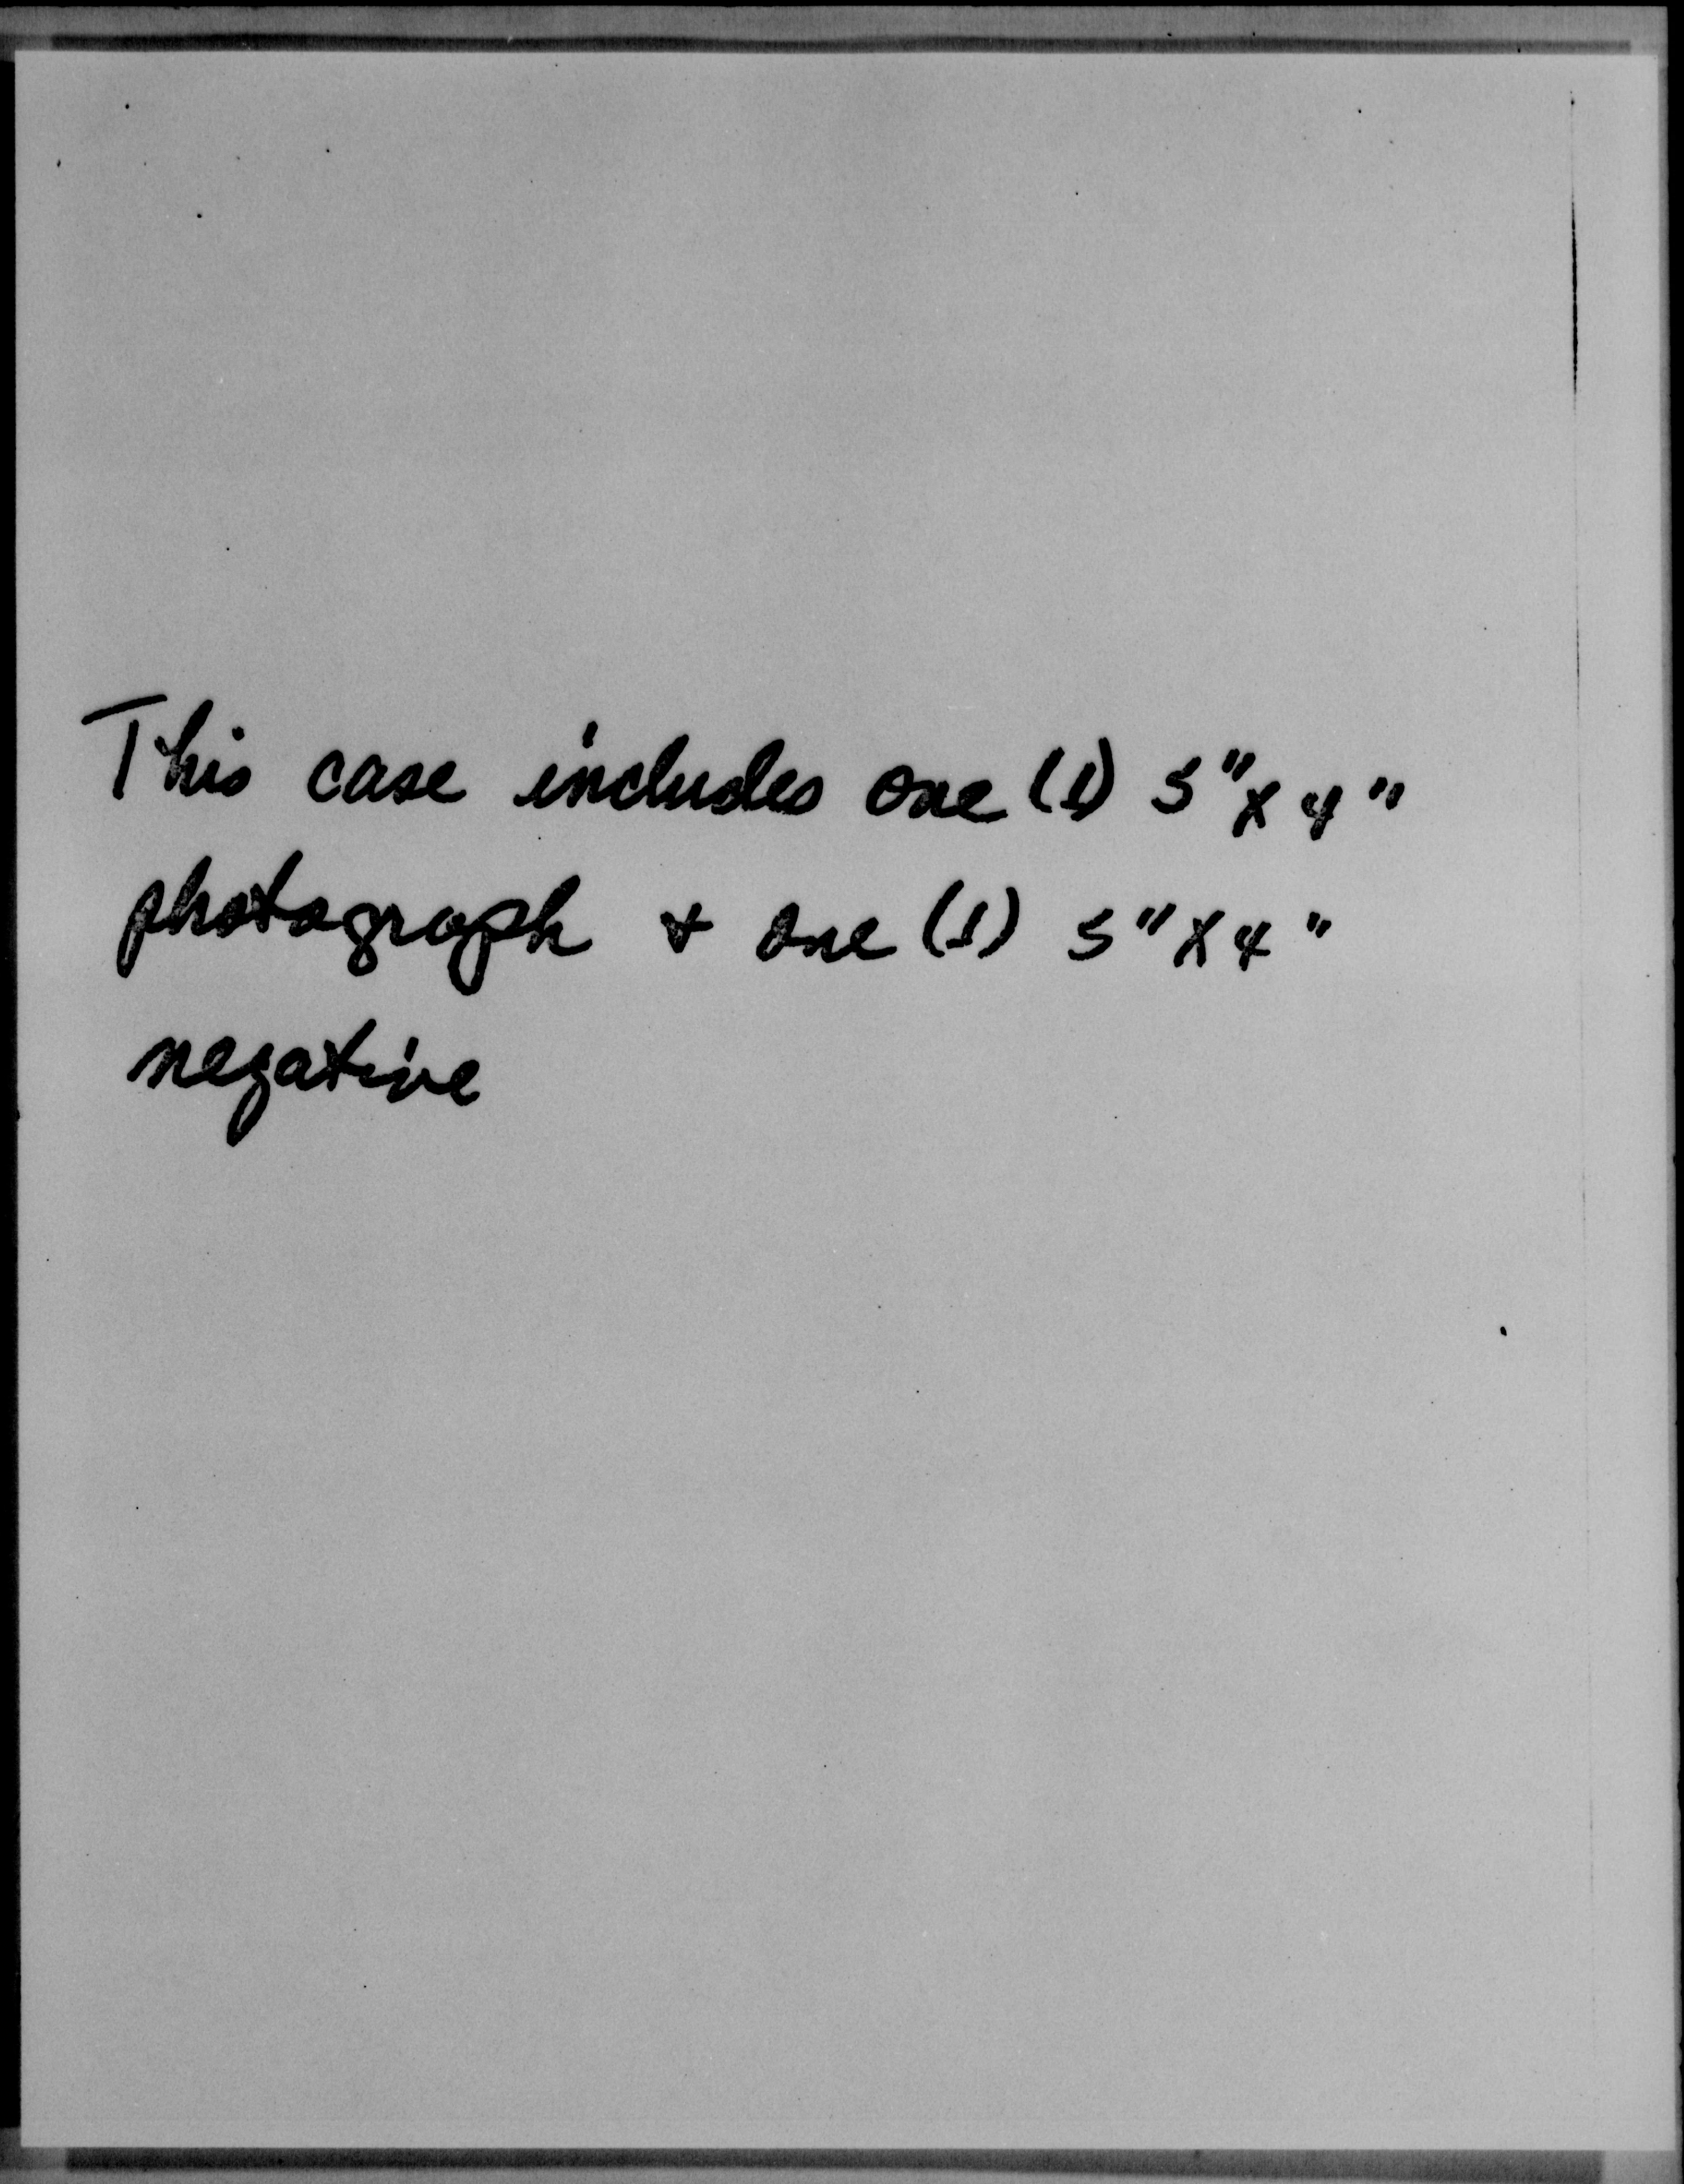 This case includes one (1) 5" x 4"
photograph + one (1) 5" x 4"
negative